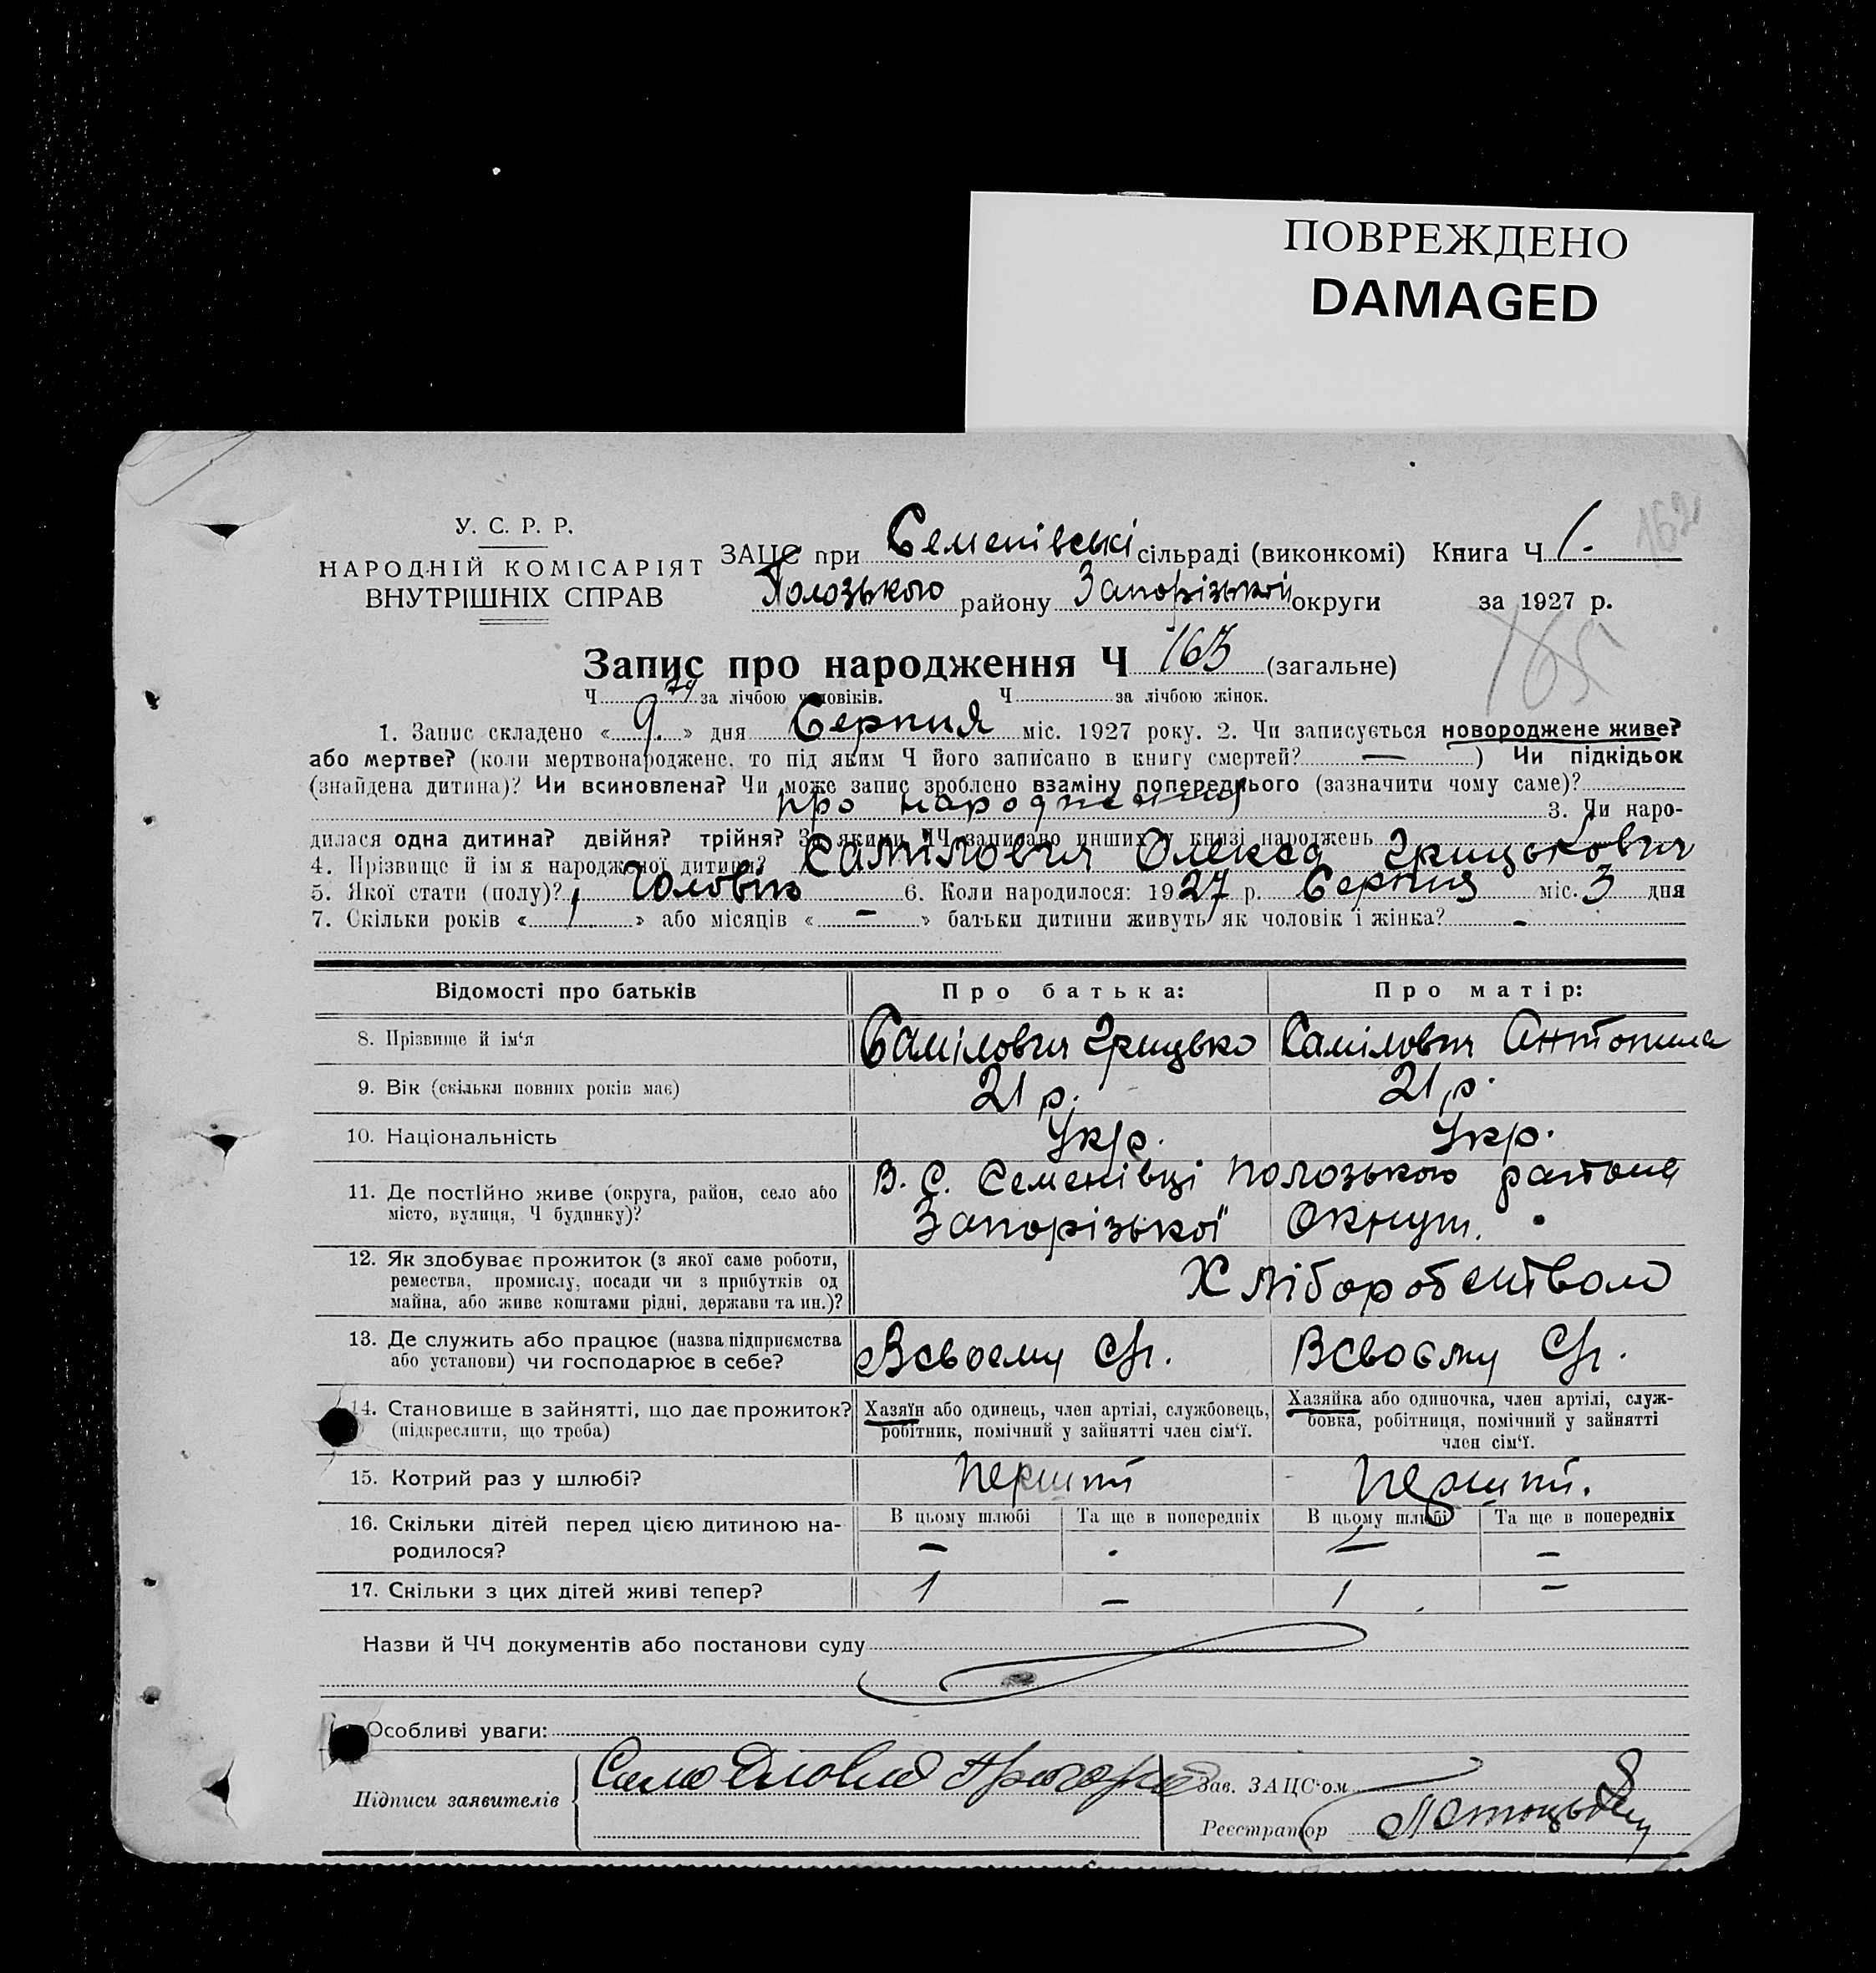 ПОВРЕЖДЕНО
DAMAGED
У. С. Р. Р.
НАРОДНІЙ КОМІСАРІЯТ
ВНУТРІШНІХ СПРАВ
ЗАЦС при Семенівські сільраді (виконкомі) Книга Ч 1.
162
Полозького району Запорізької округи за 1927 р.
Запис про народження Ч 163 (загальне)
165
Ч 79 за лічбою чоловіків. Ч за лічбою жінок.
1. Запис складено « 9 » дня Серпня міс. 1927 року. 2. Чи записується новороджене живе?
або мертве? (коли мертвонароджене, то під яким Ч його записано в книгу смертей? — ) Чи підкідьок
(знайдена дитина)? Чи всиновлена? Чи може запис зроблено взаміну попереднього (зазначити чому саме)?
про народження 3. Чи наро-
дилася одна дитина? двійня? трійня? За якими ЧЧ записано инших у книзі народжень
4. Прізвище й ім'я народженої дитини? Самілович Олекса Грицькович
5. Якої стати (полу)? Чоловік 6. Коли народилося: 1927 р. Серпня міс. 3 дня
7. Скільки років « 1 » або місяців « — » батьки дитини живуть як чоловік і жінка? -
Відомості про батьків Про батька: Про матір:
8. Прізвище й ім'я Самілович Грицько Самілович Антонина
9. Вік (скільки повних років має) 21 р. 21 р.
10. Національність Укр. Укр.
11. Де постійно живе (округа, район, село або В. С. Семенівці Полозького
місто, вулиця, Ч будинку)? Запорізької
12. Як здобуває прожиток (з якої саме роботи,
ремества, промислу, посади чи з прибутків од
майна, або живе коштами рідні, держави та ин.)? Хліборобством
13. Де служить або працює (назва підприємства
або установи) чи господарює в себе? Всвоєму Всвоєму
14. Становище в зайнятті, що дає прожиток? Хазяїн або одинець, член артілі, службовець, Хазяйка або одиночка, член артілі, служ-
(підкреслити, що треба) робітник, помічний у зайнятті член сім'ї. бовка, робітниця, помічний у зайнятті
член сім'ї.
15. Котрий раз у шлюбі? перший перший.
16. Скільки дітей перед цією дитиною на- В цьому шлюбі Та ще в попередніх В цьому шлюбі Та ще в попередніх
родилося? — - — —
17. Скільки з цих дітей живі тепер? 1 — 1 —
Назви й ЧЧ документів або постанови суду
Особливі уваги:
Підписи заявителів
Зав. ЗАЦС'ом
Реєстратор